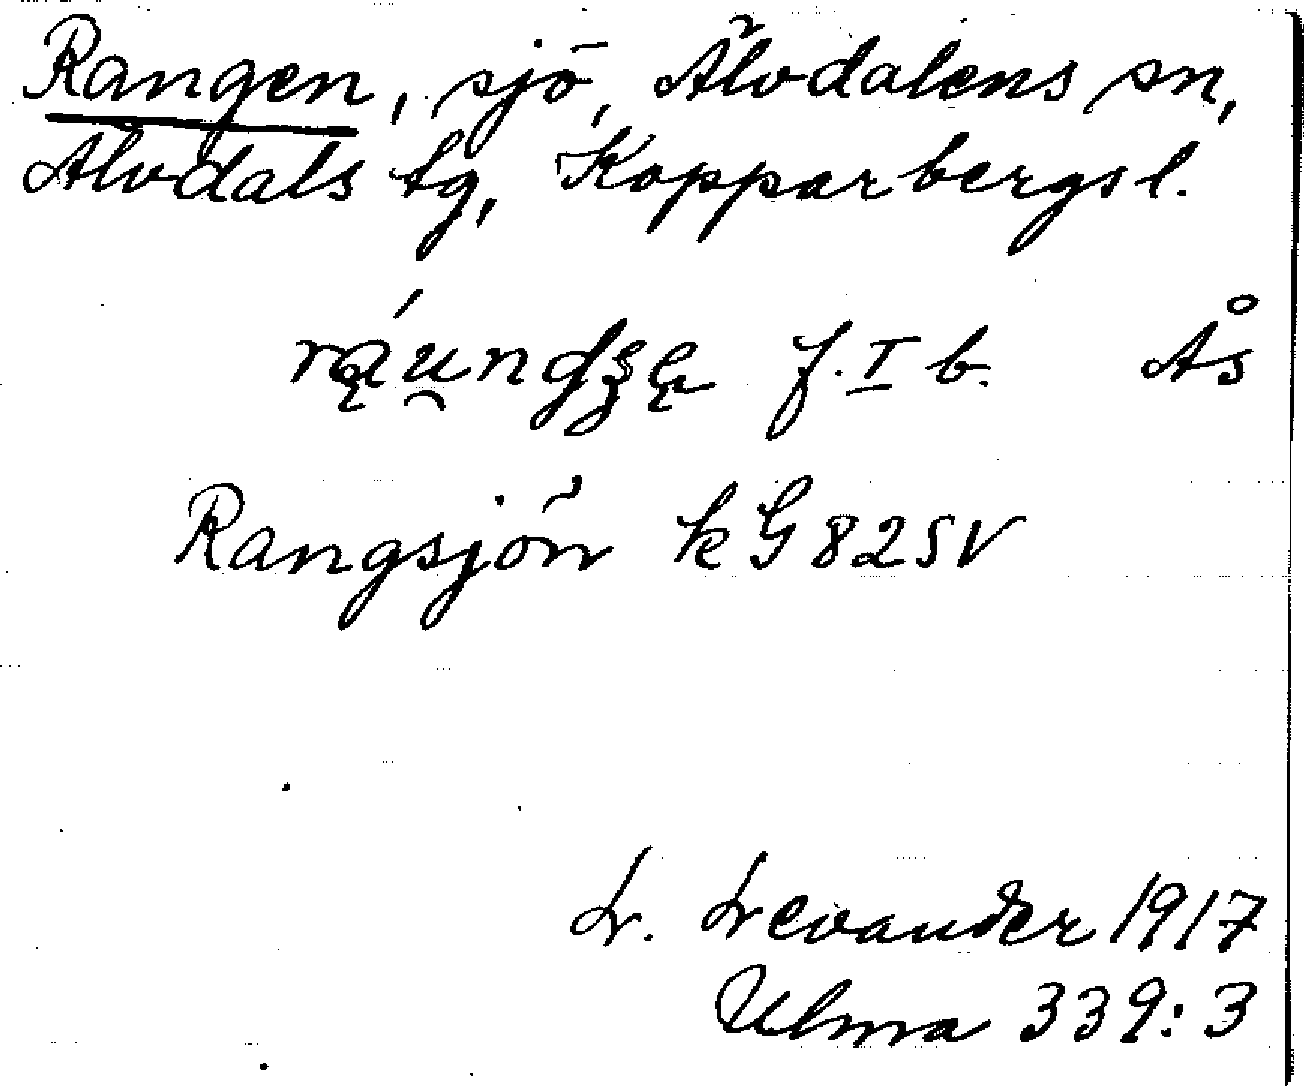 Rangen, sjö, Älvdalens sn,
Älvdals tg, Kopparbergs l.
rą́u̯ndʒę f. I b. Ås
Rangsjön kG 82 SV
L. Levander 1917
Ulma 339:3